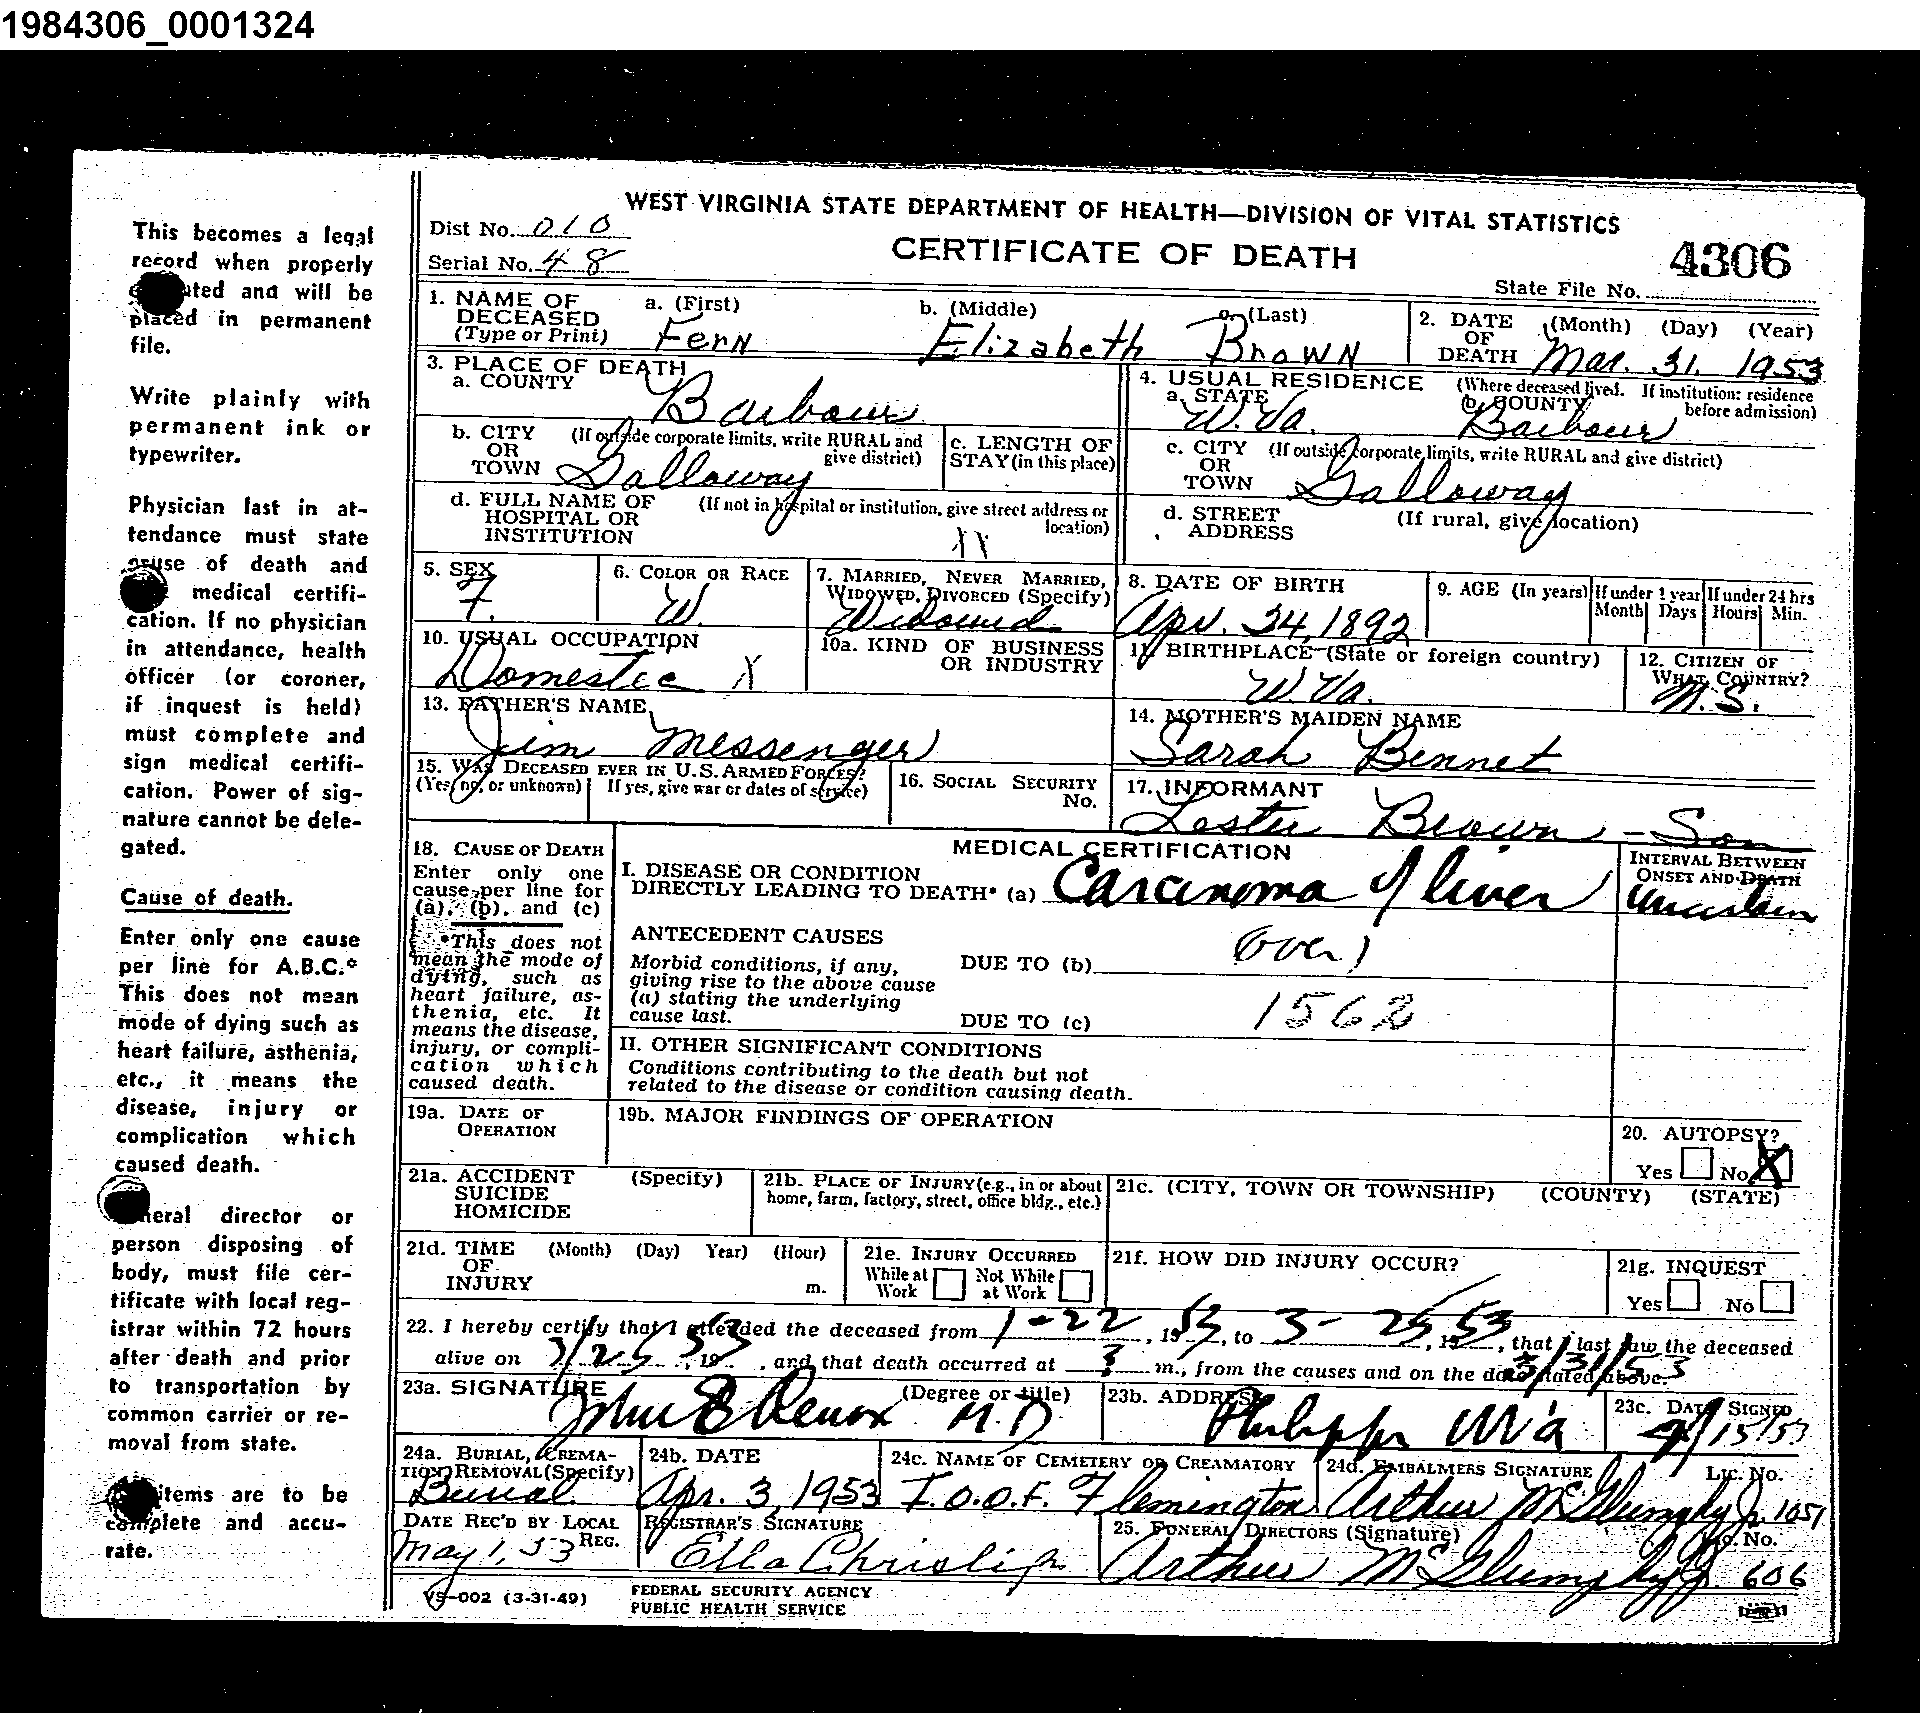 1984306_0001324
This becomes a legal
record when properly
and will be
placed in permanent
file.
Write plainly with
permanent ink or
typewriter.
Physician last in at-
tendance must state
cause of death and
medical certifi-
cation. If no physician
in attendance, health
officer (or coroner,
if inquest is held)
must complete and
sign medical certifi-
cation. Power of sig-
nature cannot be dele-
gated.
Cause of death.
Enter only one cause
per line for A.B.C.*
This does not mean
mode of dying such as
heart failure, asthenia,
etc., it means the
disease, injury or
complication which
caused death.
director or
person disposing of
body, must file cer-
tificate with local reg-
istrar within 72 hours
after death and prior
to transportation by
common carrier or re-
moval from state.
items are to be
complete and accu-
rate.
WEST VIRGINIA STATE DEPARTMENT OF HEALTH—DIVISION OF VITAL STATISTICS
Dist No. 010
CERTIFICATE OF DEATH
4306
Serial No. 48
State File No.
1. NAME OF DECEASED (Type or Print) a. (First) b. (Middle) c. (Last)
Fern Elizabeth Brown
2. DATE OF DEATH (Month) (Day) (Year)
Mar. 31. 1953
3. PLACE OF DEATH
a. COUNTY
Barbour
4. USUAL RESIDENCE (Where deceased lived. If institution: residence before admission)
a. STATE W.Va. b. COUNTY Barbour
b. CITY OR TOWN (If outside corporate limits, write RURAL and give district)
Galloway
c. LENGTH OF STAY (in this place)
c. CITY OR TOWN (If outside corporate limits, write RURAL and give district)
Galloway
d. FULL NAME OF HOSPITAL OR INSTITUTION (If not in hospital or institution, give street address or location)
d. STREET ADDRESS (If rural, give location)
5. SEX F.
6. COLOR OR RACE W.
7. MARRIED, NEVER MARRIED, WIDOWED, DIVORCED (Specify)
Widowed
8. DATE OF BIRTH
Apr. 24, 1892
9. AGE (In years) If under 1 year Month Days If under 24 hrs Hours Min.
10. USUAL OCCUPATION
Domestic X
10a. KIND OF BUSINESS OR INDUSTRY
11. BIRTHPLACE (State or foreign country)
W.Va.
12. CITIZEN OF WHAT COUNTRY?
U.S.
13. FATHER'S NAME
Jim Messenger
14. MOTHER'S MAIDEN NAME
Sarah Bennet
15. WAS DECEASED EVER IN U.S. ARMED FORCES?
(Yes, no, or unknown) If yes, give war or dates of service)
16. SOCIAL SECURITY No.
17. INFORMANT
Lester Brown - Son
18. CAUSE OF DEATH
Enter only one
cause per line for
(a), (b), and (c)
*This does not
mean the mode of
dying, such as
heart failure, as-
thenia, etc. It
means the disease,
injury, or compli-
cation which
caused death.
MEDICAL CERTIFICATION
I. DISEASE OR CONDITION
DIRECTLY LEADING TO DEATH* (a) Carcinoma of liver
INTERVAL BETWEEN ONSET AND DEATH
Uncertain
ANTECEDENT CAUSES
(over)
Morbid conditions, if any, DUE TO (b)
giving rise to the above cause
(a) stating the underlying
cause last. DUE TO (c)
1563
II. OTHER SIGNIFICANT CONDITIONS
Conditions contributing to the death but not
related to the disease or condition causing death.
19a. DATE OF OPERATION
19b. MAJOR FINDINGS OF OPERATION
20. AUTOPSY?
Yes No X
21a. ACCIDENT SUICIDE HOMICIDE (Specify)
21b. PLACE OF INJURY (e.g., in or about home, farm, factory, street, office bldg., etc.)
21c. (CITY, TOWN OR TOWNSHIP) (COUNTY) (STATE)
21d. TIME OF INJURY (Month) (Day) Year) (Hour) m.
21e. INJURY OCCURRED
While at Work Not While at Work
21f. HOW DID INJURY OCCUR?
21g. INQUEST
Yes No
22. I hereby certify that I attended the deceased from 1-22, 1953, to 3-25, 1953, that I last saw the deceased
alive on 3/25 53, 19, and that death occurred at ? m., from the causes and on the date stated above. 3/31/53
23a. SIGNATURE (Degree or title)
John E Lenox M.D
23b. ADDRESS
Philippi W Va
23c. DATE SIGNED
4/15/53
24a. BURIAL, CREMATION, REMOVAL (Specify)
Burial
24b. DATE
Apr. 3, 1953
24c. NAME OF CEMETERY OR CREAMATORY
I.O.O.F. Flemington
24d. EMBALMERS SIGNATURE Lic. No.
Arthur McGlumphy Jr. 1051
DATE REC'D BY LOCAL REG.
May 1, 53
REGISTRAR'S SIGNATURE
Ella Christip
25. FUNERAL DIRECTORS (Signature) Lic. No.
Arthur McGlumphy Jr. 606
VS-002 (3-31-49)
FEDERAL SECURITY AGENCY
PUBLIC HEALTH SERVICE